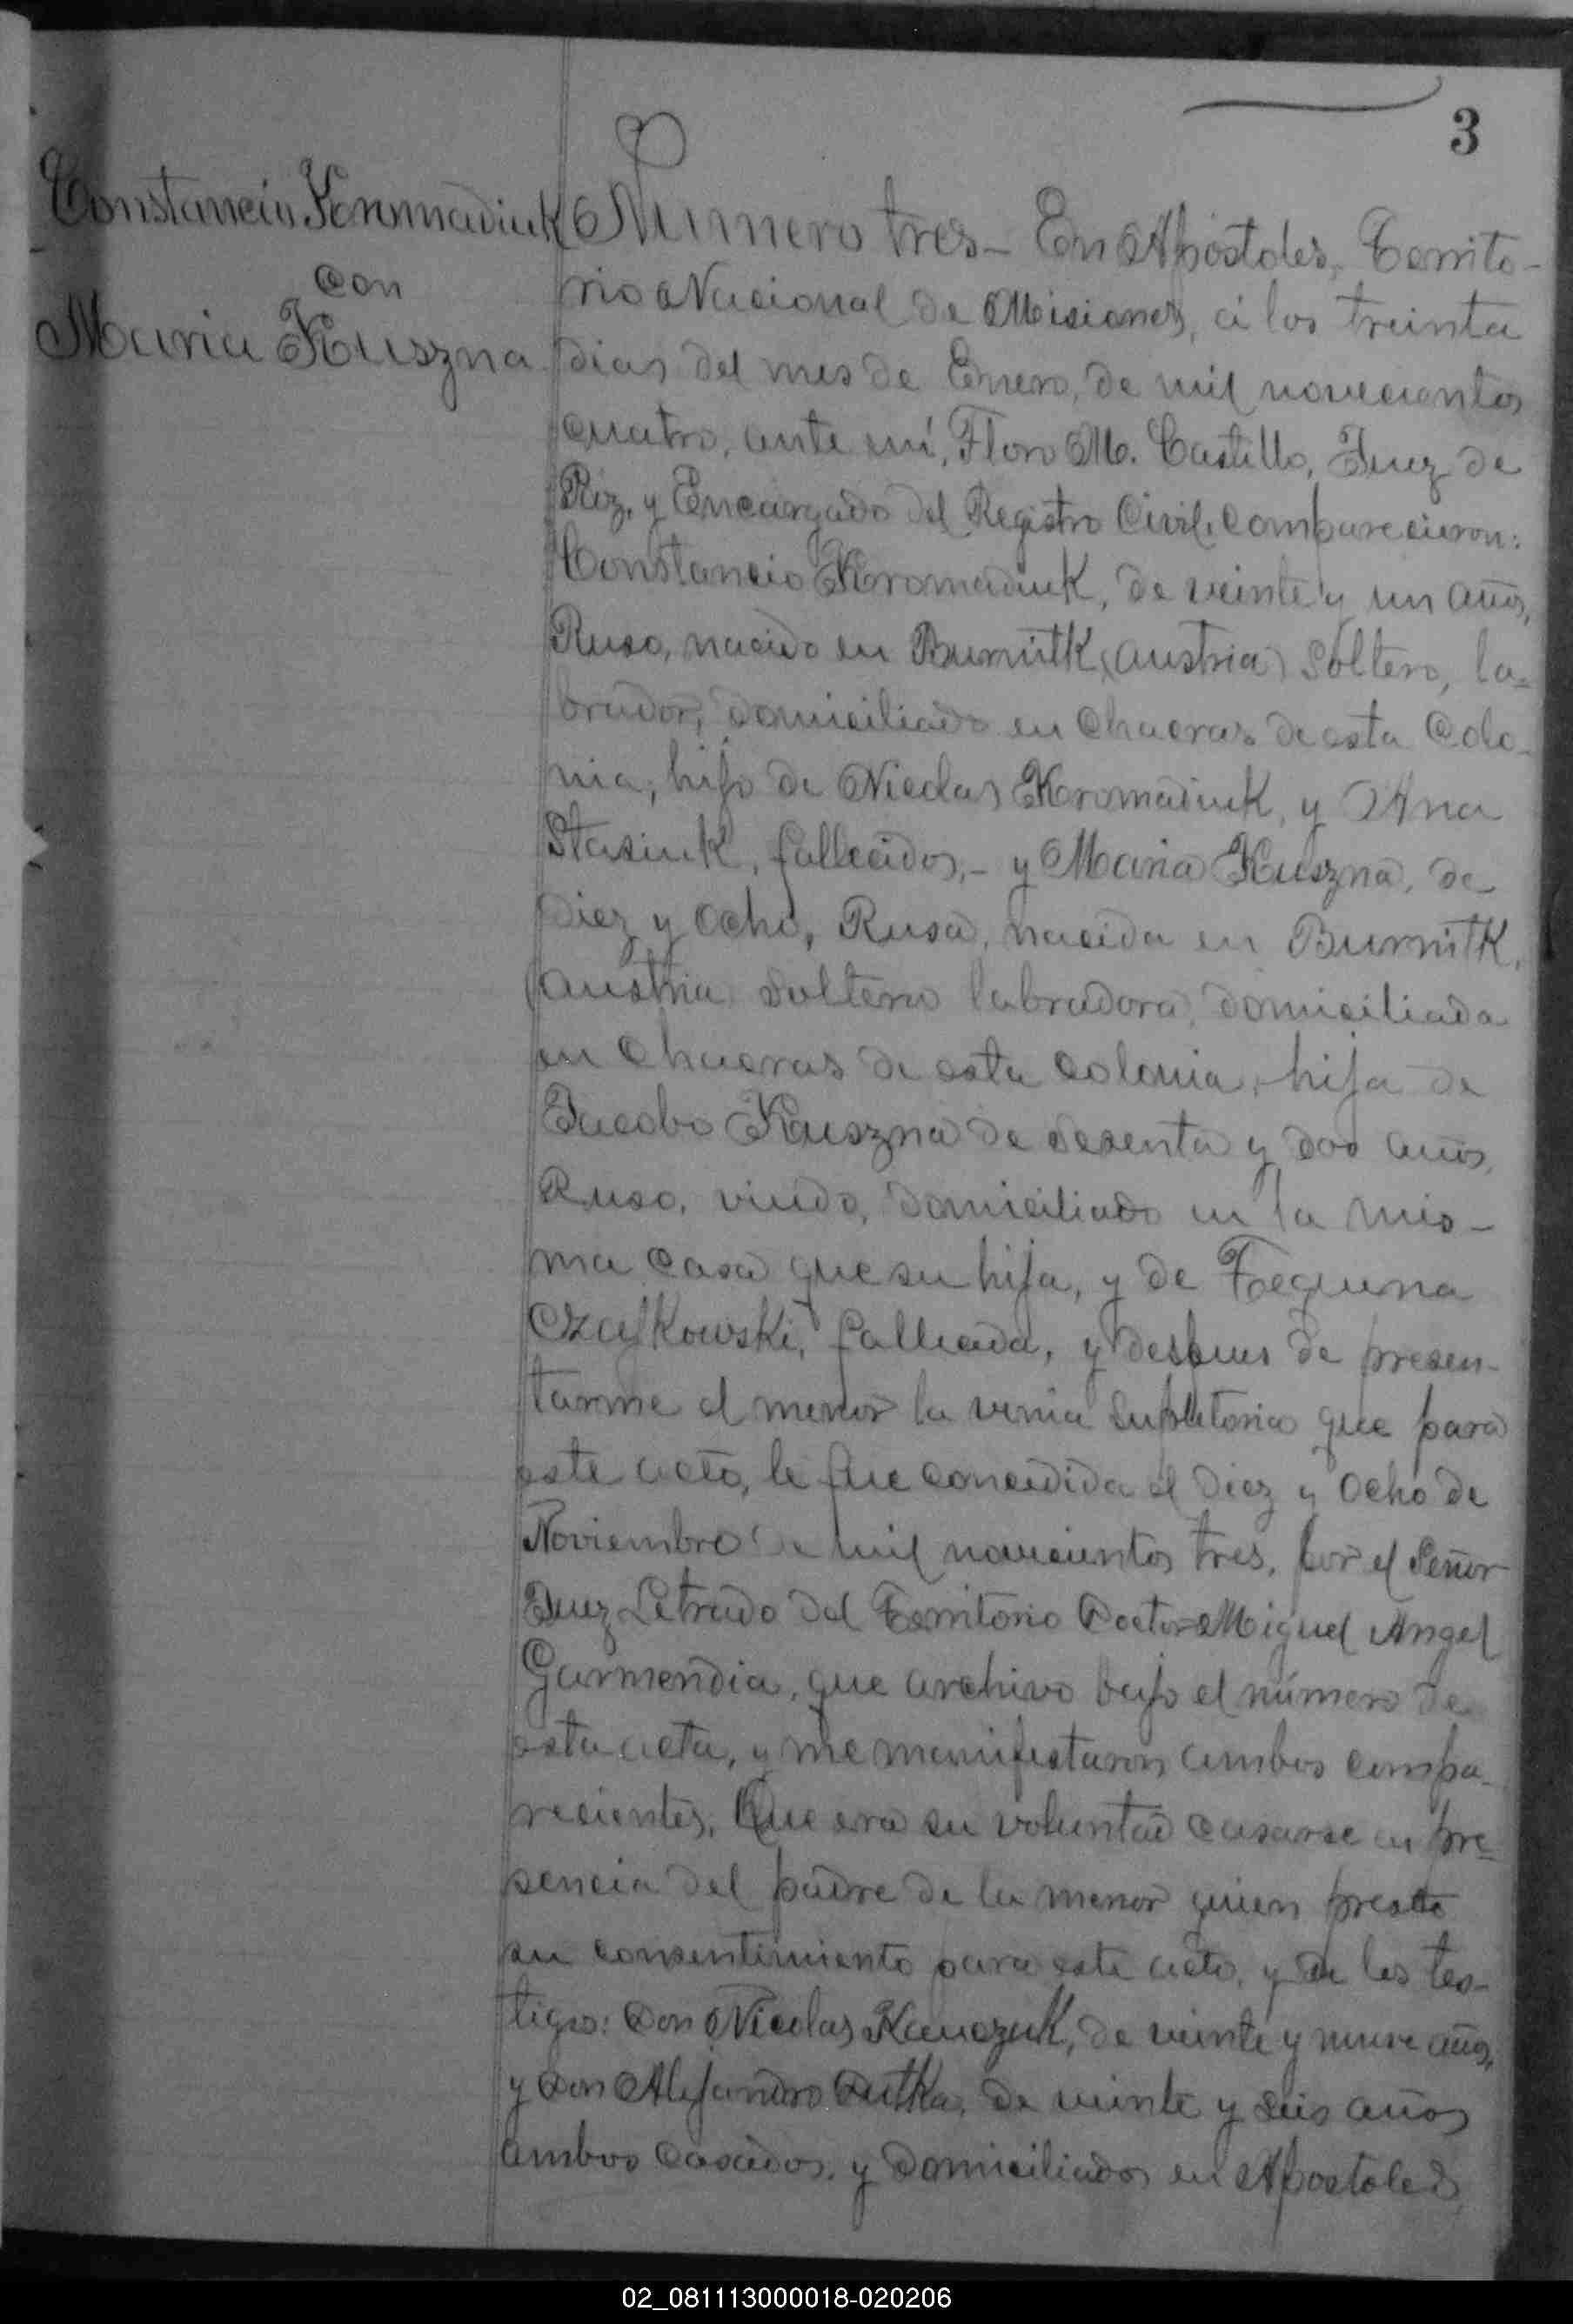 3
Constancio Kromadiuk
con
Maria Kuszna
Numero tres- En Apostoles, Territo-
rio Nacional de Misiones, á los treinta
dias del mes de Enero, de mil novecientos
cuatro, ante mí, Floro M. Castillo, Juez de
Paz, y Encargado del Registro Civil, comparecieron:
Constancio Kromadiuk, de veinte y un años,
Ruso, nacido en Burnitk (Austria) Soltero, la=
brador, domiciliado en Chacras de esta Colo-
nia, hijo de Nicolas Kromadiuk, y Ana
Stasiuk, fallecidos,- y Maria Kuszna, de
diez y ocho, Rusa, nacida en Burnitk,
(Austria) soltera labradora, domiciliada
en Chacras de esta colonia, hija de
Jacobo Kuszna de sesenta y dos años,
Ruso, viudo, domiciliado en la mis-
ma casa que su hija, y de Tegurna
Czajkowski, fallecida, y despues de presen-
tarme el menor la venia supletoria que para
este acto, le fue concedida el diez y ocho de
Noviembre de mil novecientos tres, por el Señor
Juez Letrado del Territorio Doctor Miguel Angel
Garmendia, que archivo bajo el número de
esta acta, y me manifestaron ambos compa-
recientes, Que era su voluntad casarse en pre=
sencia del padre de la menor quien presta
su consentimiento para este acto, y de los tes-
tigos: Don Nicolas Kauczuk, de veinte y nueve años,
y Don Alejandro Dutka, de veinte y seis años
ambos casados, y domiciliados en Apostoles
02_081113000018-020206